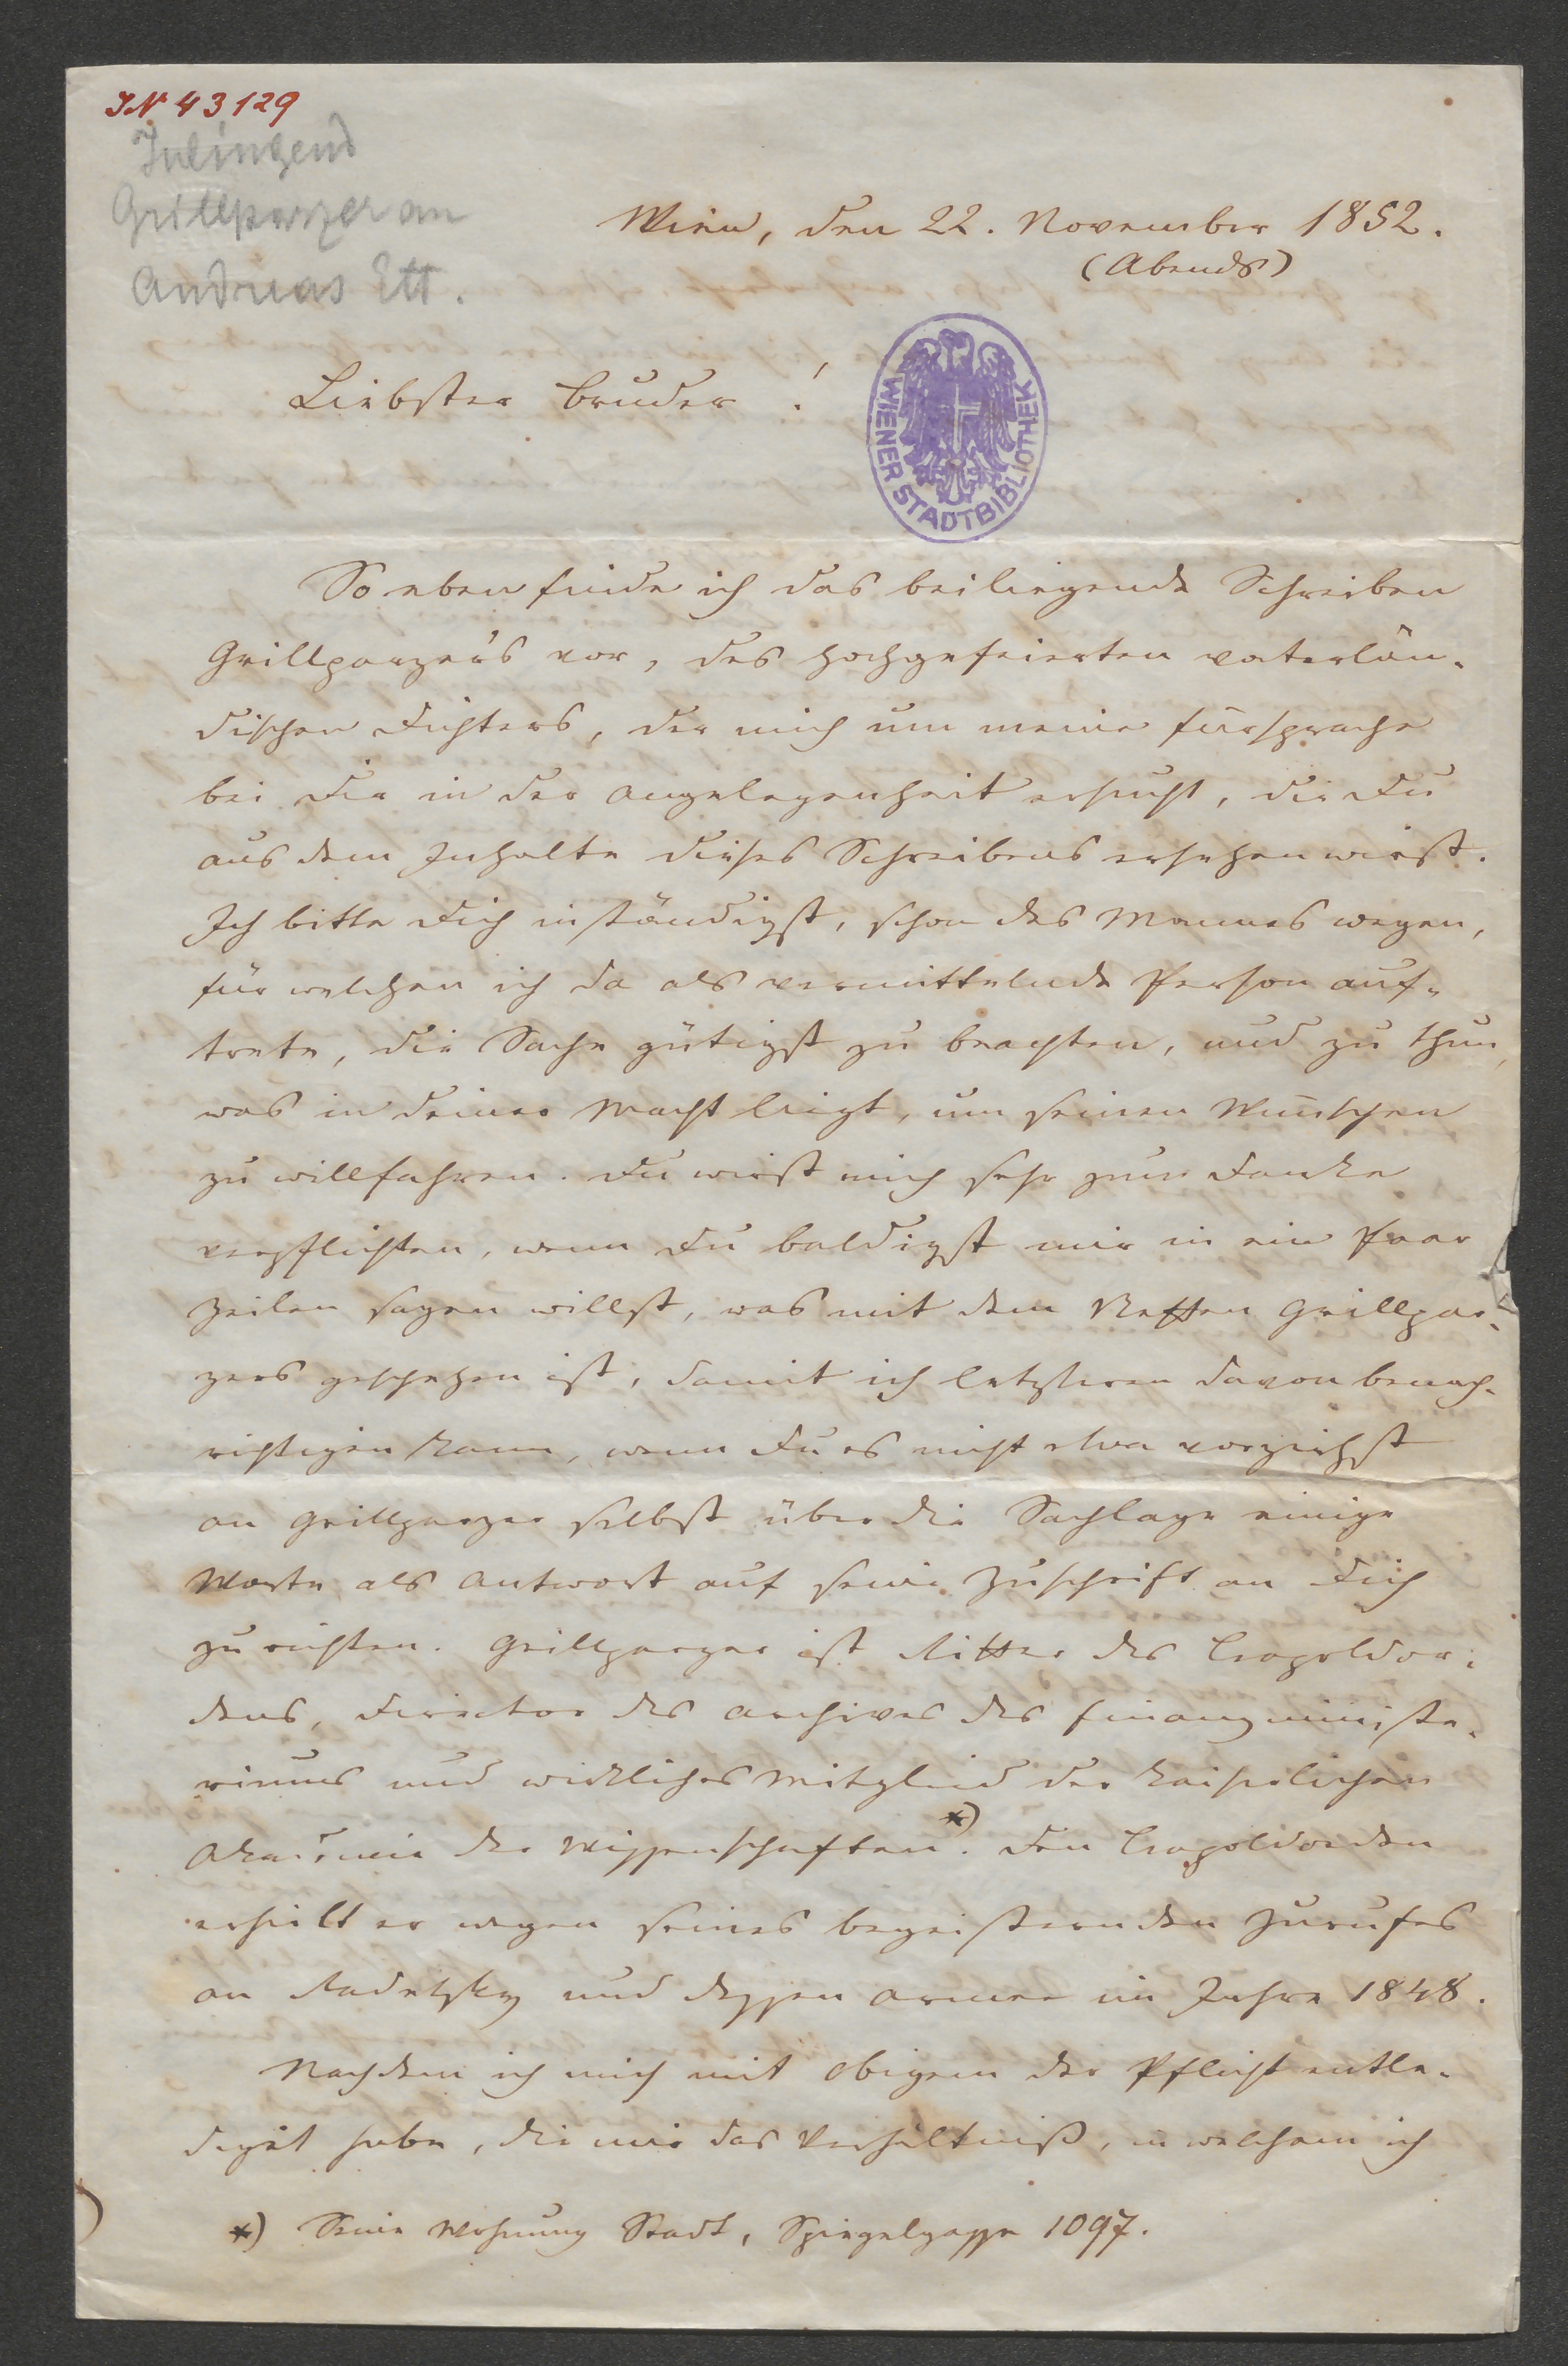 IN 43129
Inliegend
Grillparzer an
Andreas Ett.
Wien, den 22. November 1852.
(Abends)
Liebster Bruder!
WIENER STADTBIBLIOTHEK
So eben finde ich das beiliegende Schreiben
Grillparzer's vor, des hochgefeierten vaterlän-
dischen Dichters, der mich um meine Fürsprache
bei Dir in der Angelegenheit ersucht, die Du
aus dem Inhalte dieses Schreibens ersehen wirst.
Ich bitte Dich inständigst, schon des Mannes wegen,
für welchen ich da als vermittelnde Person auf-
trete, die Sache gütigst zu beachten, und zu thun,
was in Deiner Macht liegt, um seinen Wünschen
zu willfahren. Du wirst mich sehr zum Danke
verpflichten, wenn Du baldigst mir in ein Paar
Zeilen sagen willst, was mit dem Neffen Grillpar-
zers geschehen ist, damit ich letzteren davon benach-
richtigen kann, wenn Du es nicht etwa vorziehst
an Grillparzer selbst über die Sachlage einige
Worte als Antwort auf seine Zuschrift an Dich
zu richten. Grillparzer ist Ritter des Leopoldor-
dens, Director des Archives des Finanzministe-
riums und wirkliches Mitglied der kaiserlichen
Akademie der Wissenschaften *). Den Leopoldorden
erhielt er wegen seines begeisternden Zurufes
an Radetzky und dessen Armee im Jahre 1848.
Nachdem ich mich mit Obigem der Pflicht entle-
digt habe, die mir das Verhältniß, in welchem ich
*) Seine Wohnung Stadt, Spiegelgasse 1097.